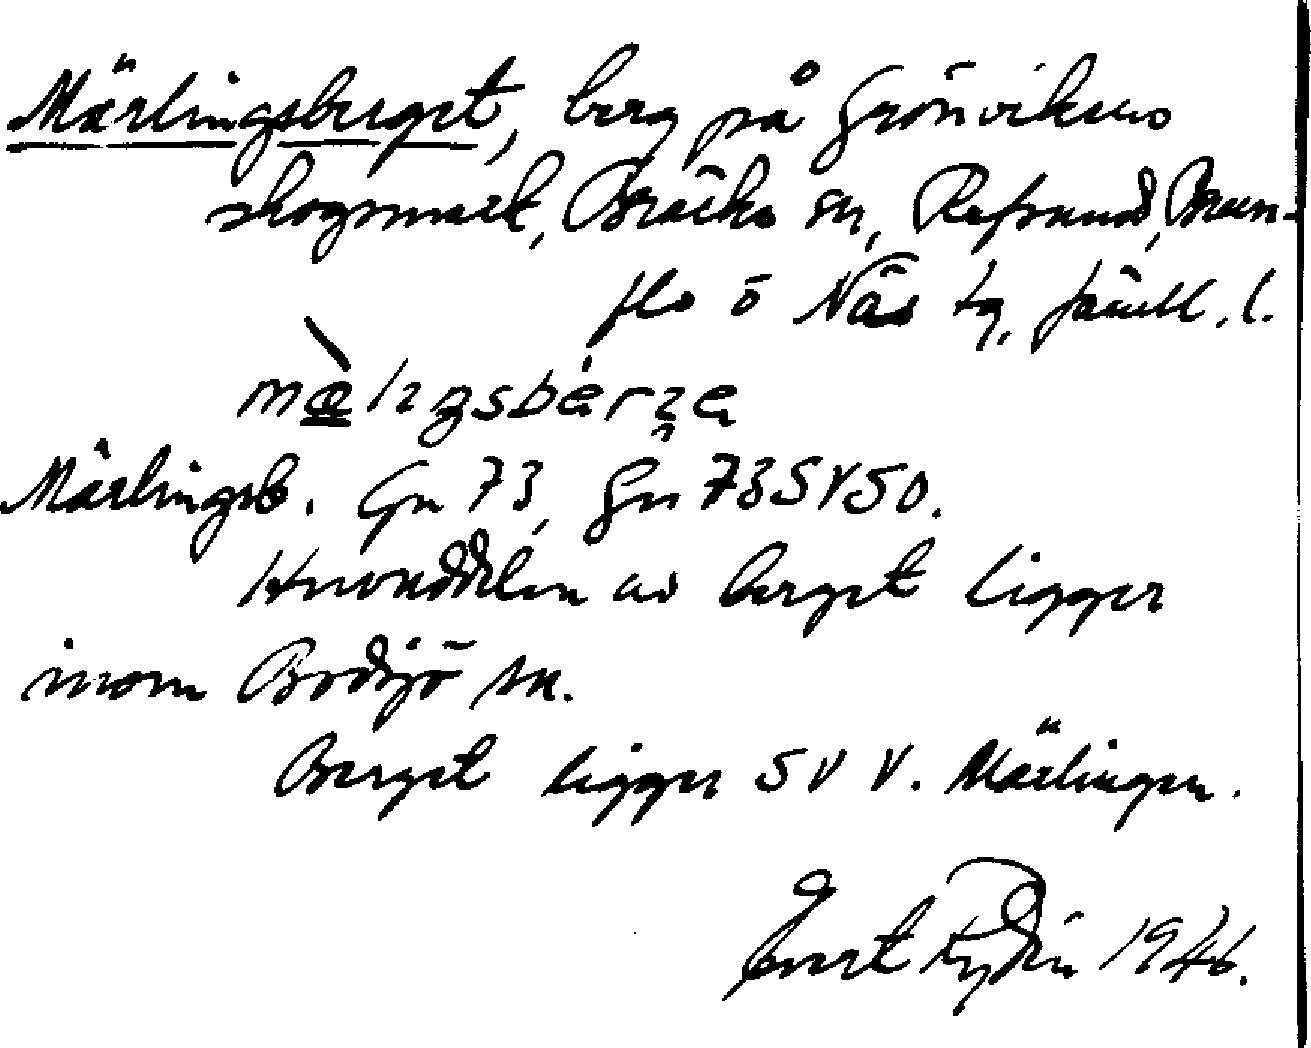 Märlingsberget, berg på Grönvikens
skogsmark, Bräcke sn, Refsund, Brun-
flo o Näs tg, Jämtl. l.
mæ̀lıŋsbærʒe
Märlingsb. Gn 73, Gn 73SV50.
Huvuddelen av berget ligger
inom Bodsjö sn.
Berget ligger SV V. Märlingen.
Evert Rydin 1946.